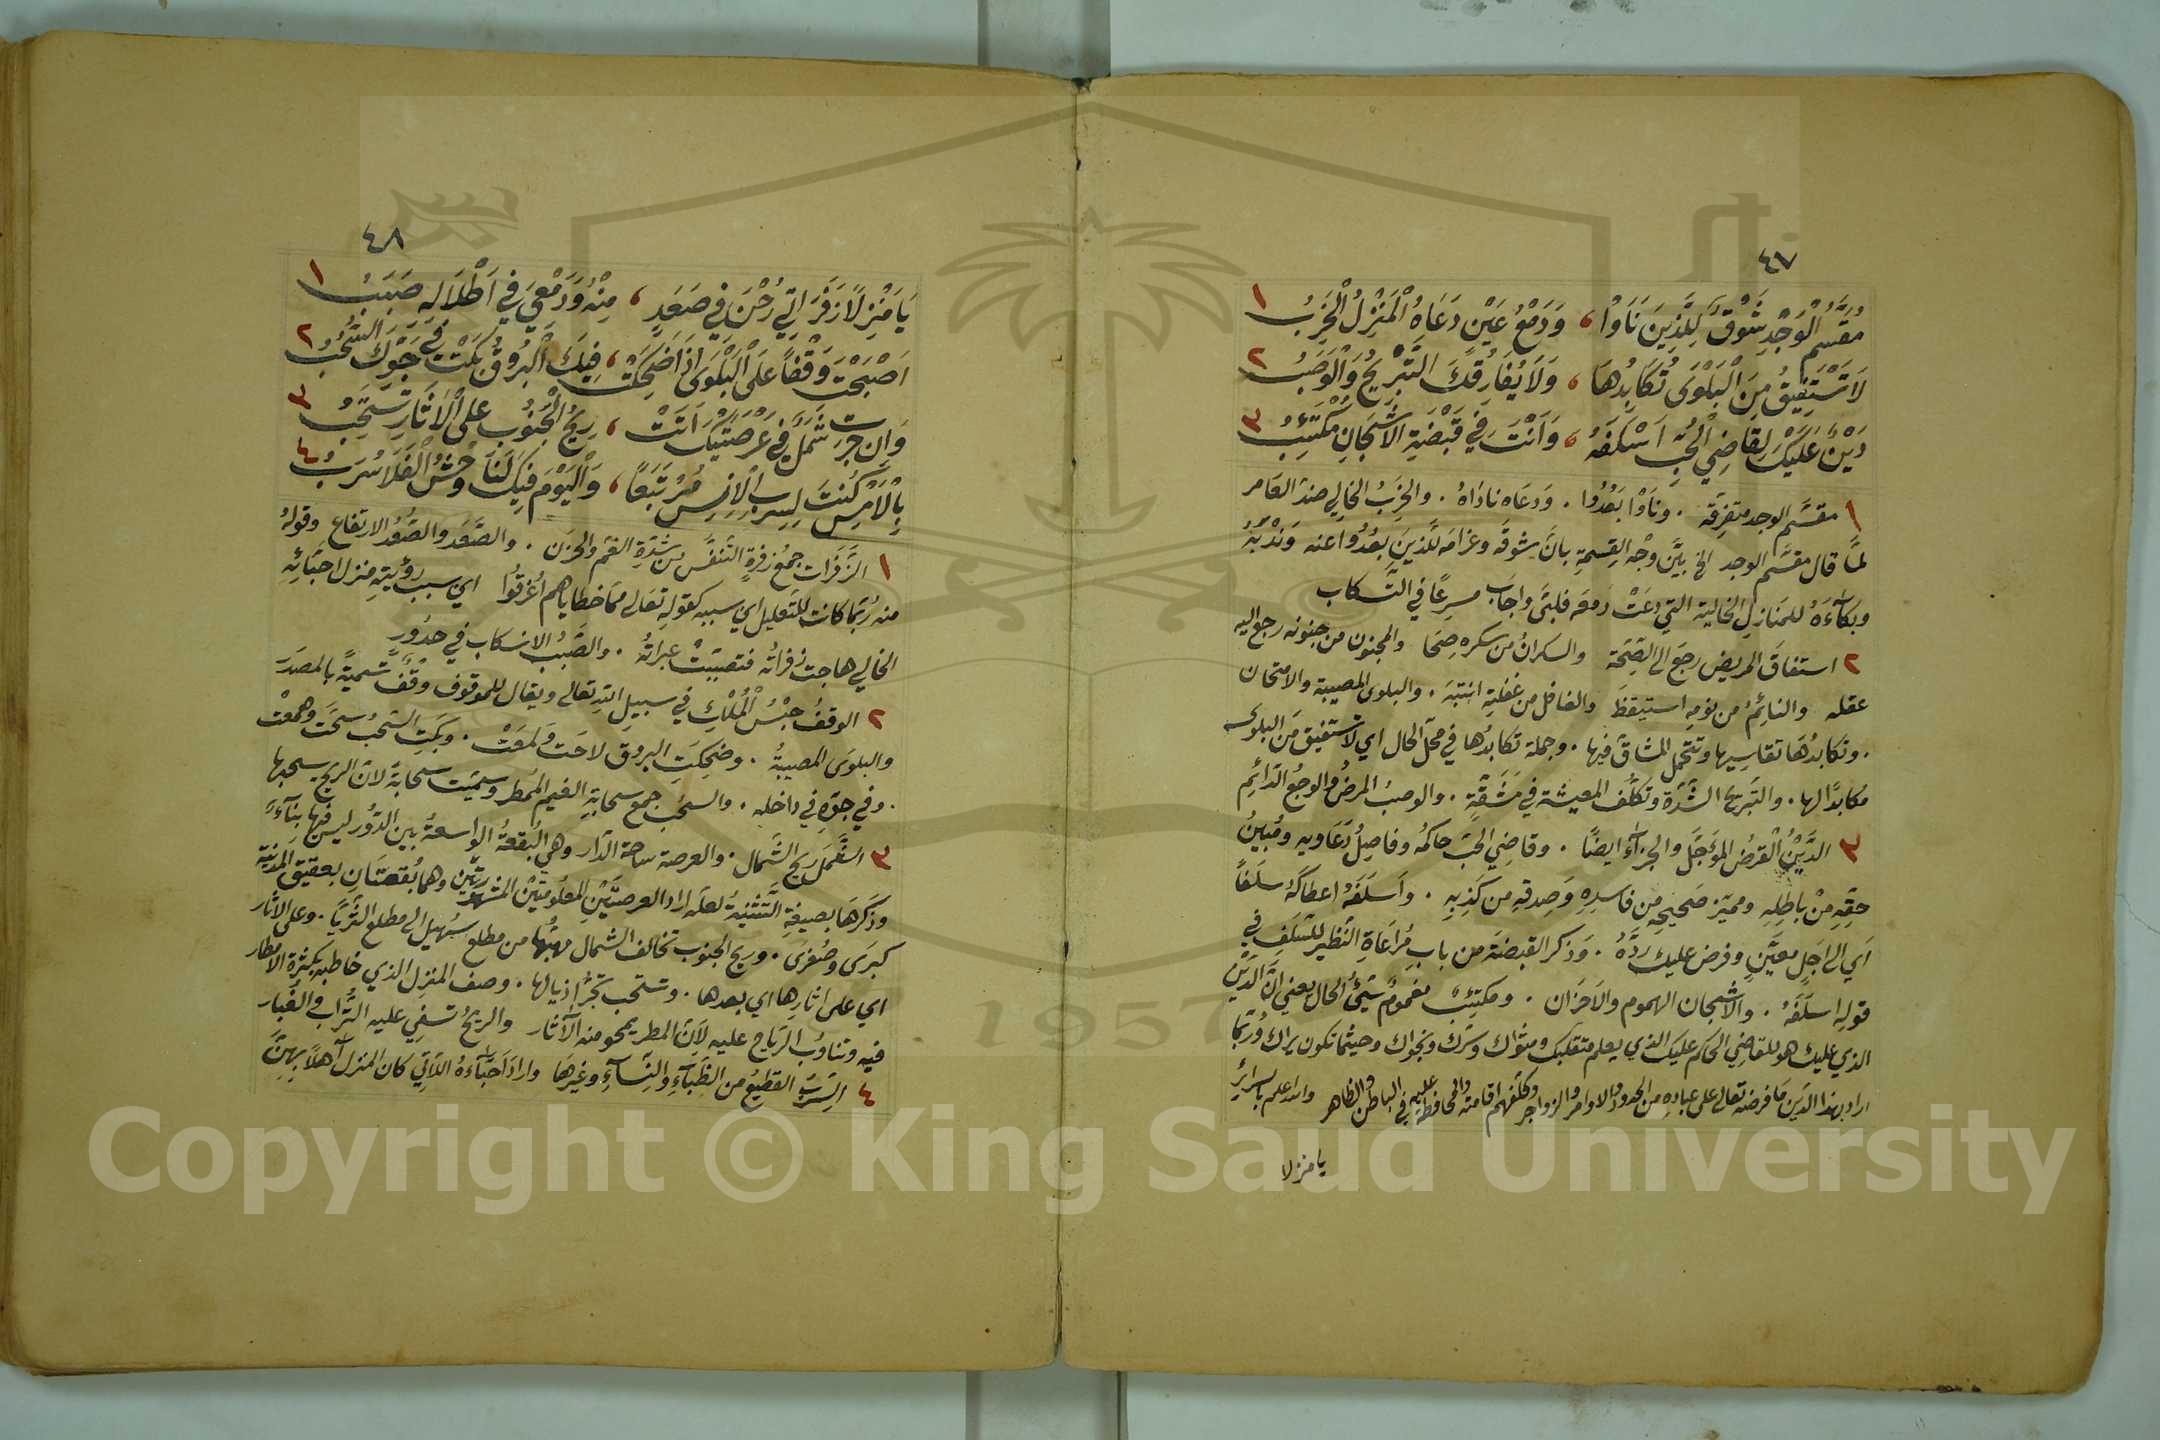 ٤٧
مُقَسَّمُ الْوَجْدِ شَوْقٌ لِلَّذِينَ نَاوْا ، وَدَمْعُ عَيْنٍ دَعَاهُ الْمَنْزِلُ الْخَرِبُ ١
لَا تَسْتَفِيقُ مِنَ الْبَلْوَى تُكَابِدُهَا ، وَلَا يُفَارِقُكَ التَّبْرِيحُ وَالْوَصَبُ ٢
دَيْنٌ عَلَيْكَ لِقَاضِي الْحُبِّ اَسْلَفَهُ ، وَاَنْتَ فِي قَبْضَةِ الْاَشْجَانِ مُكْتَئِبُ ٣
١ مقسّم الوجد متفرقه . وناوْا بَعُدُوا . وَدعَاه نادَاهُ . والخَرِبُ الخالي ضد العَامر
لمَّا قال مقسَّم الوجد الخ بيَّن وجْه القِسمةِ بانَّ شوقَه وغرامَه للَّذينَ بعُدُوا عنه وَندْبَهُ
وبكآءَهُ للمنازلِ الخالية التي دعَتْ دمعَه فلبّى واجاب مسرعًا في التَّسكاب
٢ استفاقَ المريض رجعَ الى الصِّحَّة والسكرانُ من سكرهِ صحَا والمجنون من جنونه رجع اليه
عقله والنائمُ من نومِه استيقظَ والغافل من غفلتِه انتبهَ . والبلوى المصيبة والامتحان
. وتكابدُهَا تقاسيها وتتحمل المشاقَّ فيها . وجملة تكابدُها في محل الحال اي لا تستفيق منَ البلوى
مكابدًا لها . والتبريح الشّدّة وتكلُّف المعيشة في مَشقَّةٍ . والوصبُ المرضُ والوجعُ الدَّائمِ
٣ الدَّيْنُ القرضُ المؤَجَّل والجزآءُ ايضًا . وقاضِي الحبّ حاكمُه وفاصِلُ دَعَاويه ومُبَينُ
حقِّهِ مِنْ باطِلهِ ومميّز صَحيحِه مِن فاسِدِهِ وَصِدقهِ من كذِبهِ . واَسلَفَهُ اعطاهُ سلَفًا
اَي الى اجَلٍ معيَّنٍ وفرض عليك ردَّهُ . وَذكر القبضةَ من بابِ مُرَاعَاةِ النَّظير للسَّلَفِ في
قوله اسلَفَهُ . والاشجان الهموم والاحزان . ومكتئبٌ مغمومٌ سَيِّئُ الحال يعني انَّ الدَّيْن
الذي عليك هو للقاضي الحاكم عليك الذي يعلم متقلبك ومثواك وسرّك ونجواك وحيثما تكون يراك ورُبَّما
اراد بهذا الدين مَا فرضَه تعالى على عبادِهِ من الحدود والاوامر والزواجر وكلَّفهم اقامته والمحافظة عليه في الباطن والظاهر والله اعلم بالسرائر
يا منزلا
٤٨
يَا مَنْزِلًا زَفَرَاتِي رُحْنَ فِي صَعَدٍ ، مِنْهُ وَدَمْعِيَ فِي اَطْلَالِهِ صَبَبُ ١
اَصْبَحْتَ وَقْفًا عَلَى الْبَلْوَى اِذَا ضَحِكَتْ ، فِيكَ الْبُرُوقُ بَكَتْ فِي جَوِّكَ السُّحُبُ ٢
وَاِنْ جَرَتْ شَمْأَلٌ فِي عَرْصَتَيْكَ اَتَتْ ، رِيحُ الْجَنُوبِ عَلَى الْاَثَارِ تَنْسَحِبُ ٣
بِالْاَمْسِ كُنْتَ لِسِرْبِ الْاِنْسِ مُرْتَبَعًا ، وَالْيَوْمَ فِيكَ لَنَا وَحْشُ الْفَلَا سُرَبُ ٤
١ الزَّفَرَات جمعُ زفرةٍ التنفس من شدّةِ الغم والحزَن . والصَّعَد والصُّعُد الارتفاع وقولهُ
منه رُبّما كانت للتّعليل اي بسببه كقولهِ تعالى ممّا خطاياهم اُغرقُوا اي بسبب رؤيَتِه منزلَ احبّائِهِ
الخالي هاجت زفراتُه فتصبّبَتْ عبراتُهُ . والصَّبَبُ الانسكاب في حدُورٍ
٢ الوقفُ حبْسُ المُلْكِ في سبيل اللّهِ تعالى ويقال للموقوف وَقْفٌ تسميةً بالمصدَر
والبلوَى المصيبةُ . وضحِكتِ البروق لاحَت ولمعَتْ . وبكَتِ السّحبُ سحَّت وهمعَتْ
. وفي جوّهِ في داخلِه . والسحُب جمع سحابةٍ الغيم المُمطر وسمّيت سحابةً لانّ الريح يسحبها
٣ الشَّمْمَل ريح الشَّمال . والعرصة ساحة الدّار وهي البُقعةُ الواسعةُ بين الدُّور ليس فيها بنآءٌ
وذكرهَا بصيغةِ التَّثنيةُ لعلّه اراد العرصتَيْنِ المعلُومتيْن المشهورتين وهما بُقعتَانِ بعقيق المدنيَة
كبرَى وصُغرَى . وريح الجنوب تخالف الشمال مهبُّها من مطلع سُهيل الى مطلع الثُّريّا . وعلى الاثار
اي على اثارها اي بعدها . وتنسحب تجرُّ اذيالها . وصف المنزل الذي خاطبه بكثرة الامطار
فيه وتناوُب الرّياح عليه لاِنّ المطر يمحو منه الآثار والريحُ تسفي عليه التُّراب والغُبار
٤ السِّرب القطيعُ من الظّباءِ والنِّسآءِ وغيرهَا واراد اَحبَّآءَهُ اللّاتي كان المنزل آهلًا بهنَّ